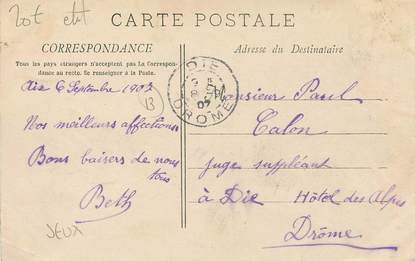 CARTE POSTALE
CORRESPONDANCE
Tous les pays étrangers n'acceptent pas la Correspon-
dance au recto. Se renseigner à la Poste.
Adresse du Destinataire
DIE
DROME
07
6 Septembre 1907
13
Nos meilleurs affections
Bons baisers de nous
tous
Beth
Monsieur Paul
Calon
juge suppléant
à Die Hôtel des Alpes
Drôme
JEUX